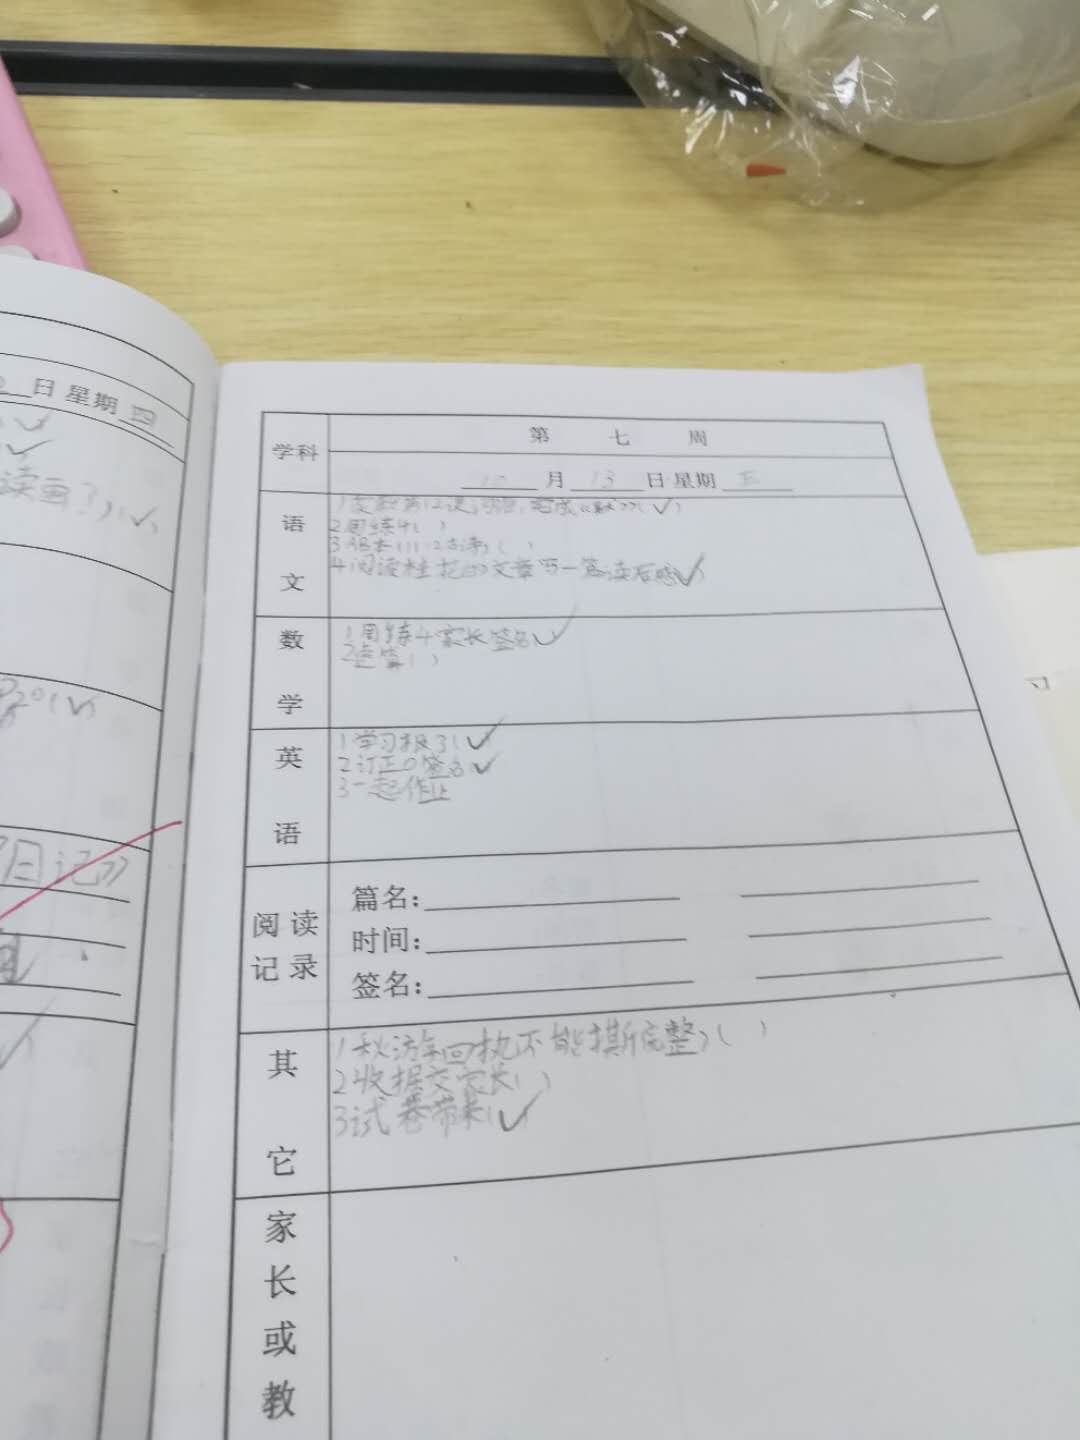 日 星期 四
读画?)(✓)
日记》
学科
第 七 周
10 月 13 日 星期 五
语文
2周练4( )
4阅读桂花的文章写一篇读后感(✓)
数学
1周练4家长签名(✓)
2速算( )
英语
1学习报3(✓)
2订正签名(✓)
3一起作业
阅读记录
篇名:
时间:
签名:
其它
1秋游回执不能撕完整)( )
2收据交家长( )
3试卷带来(✓)
家长或教